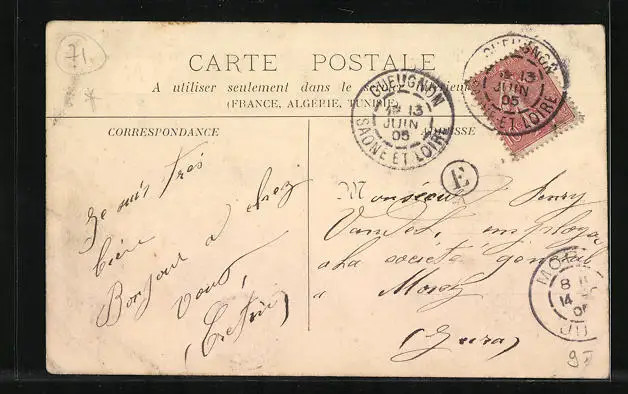 71
CARTE POSTALE
A utiliser seulement dans le service intérieur
(FRANCE, ALGÉRIE, TUNISIE)
CORRESPONDANCE
ADRESSE
GUEUGNON
13
JUIN
05
SAONE ET LOIRE
GUEUGNON
13
JUIN
05
ET LOIRE
E
Je suis très
bien
Bonjour a chez
vous,
(Cretin)
Monsieur Henry
employé
a la société général
a Morez
(Jura)
MO
8
14
05
JUI